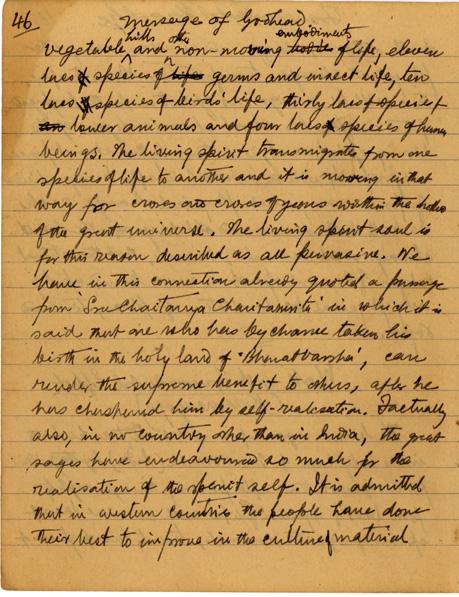 46
Message of Godhead
hills other embodiments
vegetable, and non-moving of life, eleven
lacs species of germs and insect life, ten
lacs species of birds' life, thirty lacs of species of
lower animals and four lacs species of human
beings. The living spirit transmigrates from one
species of life to another and it is moving in that
way for crores and crores of years within the
of the great universe. The living spirit soul is
for this reason described as all pervasive. We
have in this connection already quoted a passage
from 'Sree Chaitanya Charitamrita' in which it is
said that one who has by chance taken his
birth in the holy land of 'Bharatbarsha', can
render the supreme benefit to others, after he
has him by self-realisation. Factually
also, in no country other than in India, the great
sages have endeavoured so much for the
realisation of the spirit self. It is admitted
that in western countries the people have done
their best to improve in the culture of material